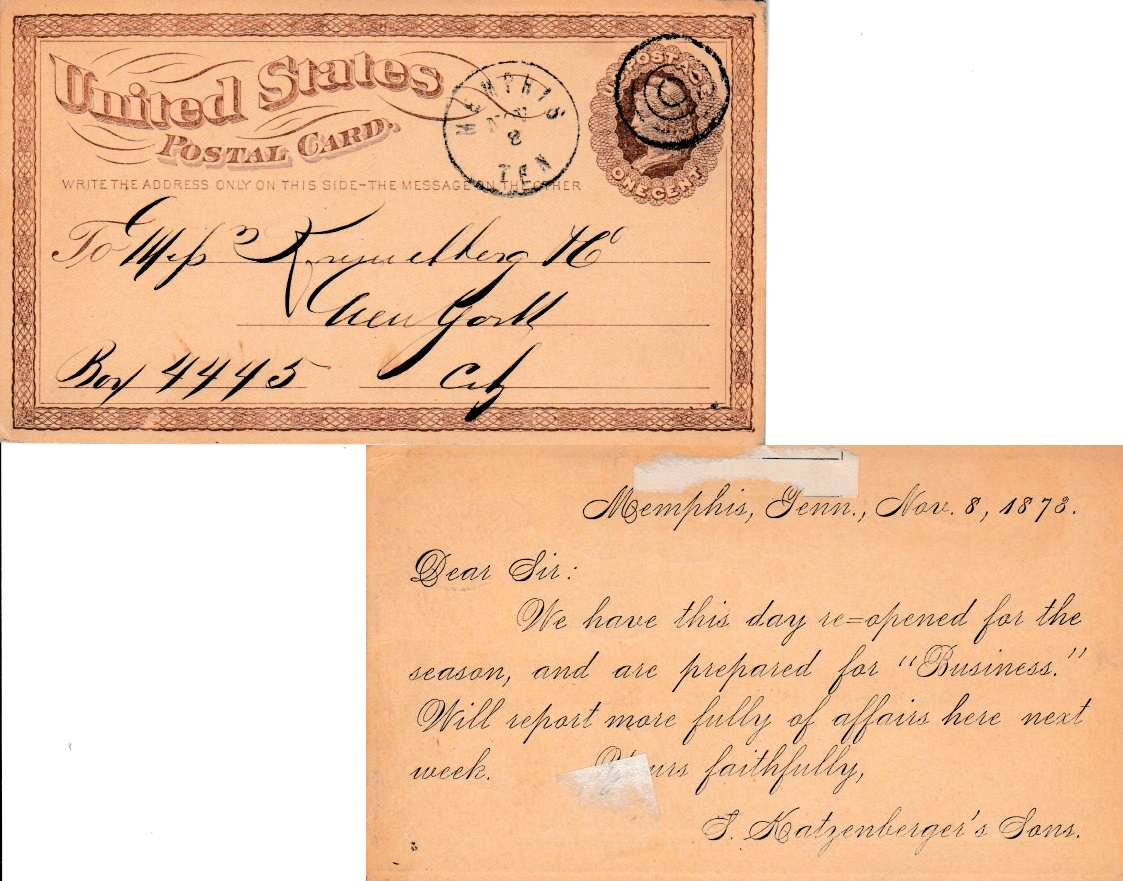 United States
POSTAL CARD.
MEMPHIS
NOV
8
TEN
U.S. POSTAGE
ONE CENT
WRITE THE ADDRESS ONLY ON THIS SIDE-THE MESSAGE ON THE OTHER
To Mess
New York
Box 4445 City
Memphis, Tenn., Nov. 8, 1873.
Dear Sir:
We have this day re=opened for the
season, and are prepared for "Business."
Will report more fully of affairs here next
week. Yours faithfully,
S. Katzenberger's Sons.